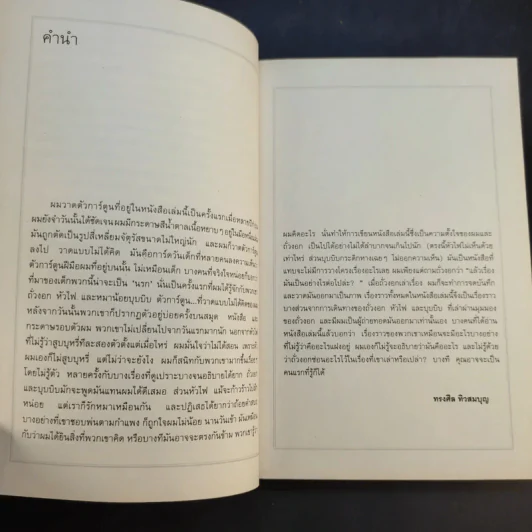 คำนำ
ผมวาดตัวการ์ตูนที่อยู่ในหนังสือเล่มนี้เป็นครั้งแรกเมื่อ
ผมยังจำวันนั้นได้ชัดเจน ผมมีกระดาษสีน้ำตาลเนื้อหยาบๆ อยู่ในมือหนึ่ง
มันถูกตัดเป็นรูปสี่เหลี่ยมจัตุรัสขนาดไม่ใหญ่นัก และผมก็วาดตัวการ์ตูน
ลงไป วาดแบบไม่ได้คิด มันคือการ์ตูนเด็กที่หลายคนลงความเห็น
ตัวการ์ตูนฝีมือผมที่อยู่บนนั้น ไม่เหมือนเด็ก บางคนที่จริงใจหน่อยก็
ที่มาของเด็กพวกนั้นว่าจะเป็น 'นรก' นั่นเป็นครั้งแรกที่ผมได้รู้จักกับ
ถั่วงอก หัวไฟ และหมาน้อยบุบบิบ ตัวการ์ตูน...ที่วาดแบบไม่ได้คิด
หลังจากวันนั้นพวกเขาก็ปรากฏตัวอยู่บ่อยครั้งบนสมุด หนังสือ และ
กระดาษรอบตัวผม พวกเขาไม่เปลี่ยนไปจากวันแรกมากนัก นอกจากหัวไฟ
ที่ไม่รู้ว่าสูบบุหรี่ทีละสองตัวตั้งแต่เมื่อไหร่ ผมมั่นใจว่าไม่ได้สอน เพราะ
ผมเองก็ไม่สูบบุหรี่ แต่ไม่ว่าจะยังไง ผมก็สนิทกับพวกเขามากขึ้นเรื่อยๆ
โดยไม่รู้ตัว หลายครั้งกับบางเรื่องที่ดูเปราะบางจนอธิบายได้ยาก ถั่วงอก
และบุบบิบมักจะพูดมันแทนผมได้ดีเสมอ ส่วนหัวไฟ แม้จะก้าวร้าวไป
หน่อย แต่เราก็รักหมาเหมือนกัน และปฏิเสธได้ยากว่าถ้อยคำ
บางอย่างที่เขาชอบพ่นตามกำแพง ก็ถูกใจผมไม่น้อย นานวันเข้า มันเหมือน
กับว่าผมได้ยินสิ่งที่พวกเขาคิด หรือบางทีมันอาจจะตรงกันข้าม พวกเขารู้
ผมคิดอะไร นั่นทำให้การเขียนหนังสือเล่มนี้ซึ่งเป็นความตั้งใจของผมและ
ถั่วงอก เป็นไปได้อย่างไม่ลำบากจนเกินไปนัก (ตรงนี้หัวไฟไม่เห็นด้วย
เท่าไหร่ ส่วนบุบบิบกระดิกหางเฉยๆ ไม่ออกความเห็น) มันเป็นหนังสือที่
แทบจะไม่มีการวางโครงเรื่องอะไรเลย ผมเพียงแค่ถามถั่วงอกว่า "แล้วเรื่อง
มันเป็นอย่างไรต่อไปล่ะ?" เมื่อถั่วงอกเล่าเรื่อง ผมก็จะทำการจดบันทึก
และวาดมันออกมาเป็นภาพ เรื่องราวทั้งหมดในหนังสือเล่มนี้จึงเป็นเรื่องราว
บางส่วนจากการเดินทางของถั่วงอก หัวไฟ และบุบบิบ ที่เล่าผ่านมุมมอง
ของถั่วงอก และมีผมเป็นผู้ถ่ายทอดมันออกมาเท่านั้นเอง บางคนที่ได้อ่าน
หนังสือเล่มนี้แล้วบอกผมว่า เรื่องราวของพวกเขาเหมือนจะมีอะไรบางอย่าง
ที่ไม่รู้ว่าคืออะไรแฝงอยู่ ผมเองก็ไม่รู้จะอธิบายว่ามันคืออะไร และไม่รู้ด้วย
ว่าถั่วงอกซ่อนอะไรไว้ในเรื่องที่เขาเล่าหรือเปล่า? บางที คุณอาจจะเป็น
คนแรกที่รู้ก็ได้
ทรงศีล ทิวสมบุญ